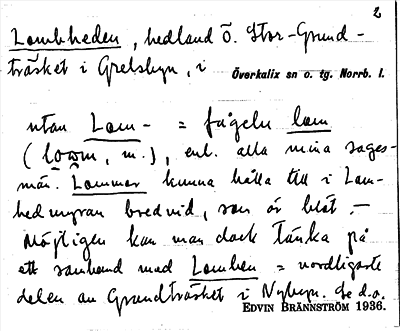 2
Lombheden, hedland ö. Stor-Grund-
träsket i Grelsbyn, i Överkalix sn o. tg. Norrb. l.
utan Lom- = fågeln lom
(lowm, m.), enl. alla mina sages-
män. Lommar kunna hålla till i Lom-
hedmyran bredvid, som är blöt. —
Möjligen kan man dock tänka på
ett samband med Lomben = nordligaste
delen av Grundträsket i Nybyn. Se d.o.
EDVIN BRÄNNSTRÖM 1936.